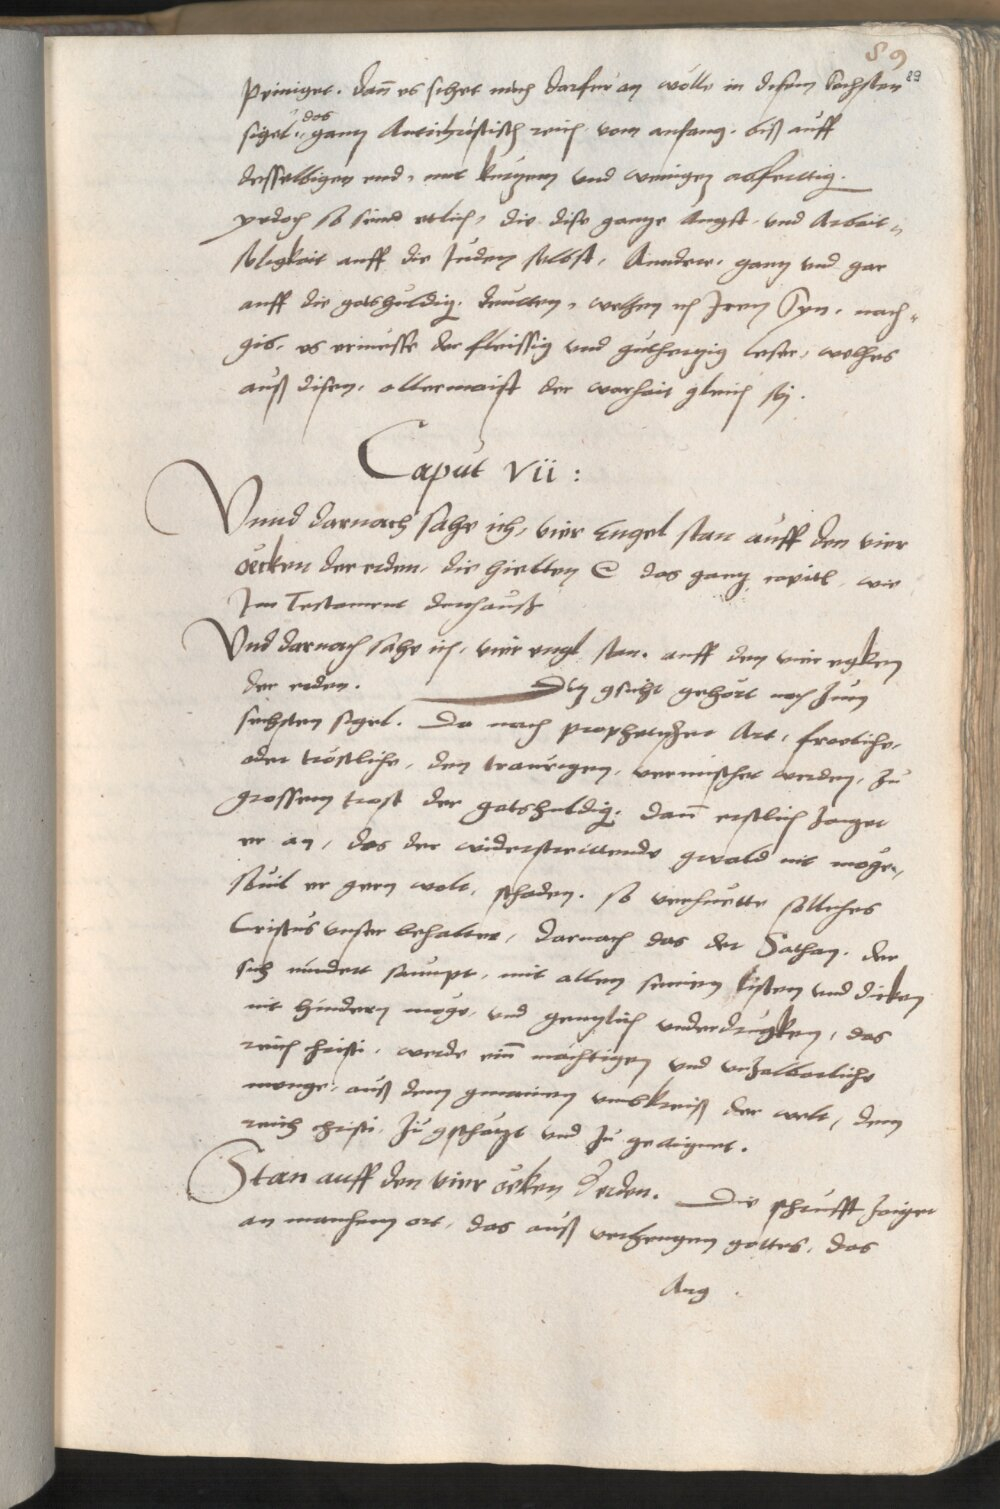 89
89
peiniget. dann es sihet mich darfur an wölle in disem sechsten
sigel, das gantz Antichristisch reich, vom anfang. biß auff
desselbigen end, mit kurtzem und wenigem abferttig.
yedoch so seind etlich, die dise gantze Angst, und Arbeit-
seligkait auff die Juden selbst, Anndere, gantz und gar
auff die gotshuldig. deutten, welhen ich Jren Syn, nach-
gib, es ermesse der fleissig und guthertzig leser, welhes
auß disen, allermaist der warhait gleich sej.
Caput Vii:
Vnnd darnach sahe ich, vier Engel stan auff den vier
öcken der erden, die hielten &c das gantz capitl, wie
Im Testament durchauß
Vnd darnach sahe ich, vier engl stan. auff den vier egken
der erden. Diß gsicht gehört noch zum
sechsten sigel. Da nach prophetischer Art, froeliche,
oder tröstliche, den traurigen, vermischet werden, zu
grossem trost der gotshuldig. dann erstlich zaiget
er an, das der widerstreittende gwald nit möge,
souil er gern wolt, schaden. so verhuette sölliches
Cristus unser behalter, darnach das der Sathan. der
sich mit allem seinem listen und dicken
nit hindern möge, und gentzlich underdrugken, das
reich christi, werde ein mächtigen und unzalbarliche
menge, auß dem gmainen umbkraiß der welt, dem
reich christi, zu gschätzt und zu geaignet.
Stan auff den vier öcken der erden. Die schrifft zaiget
an manchem ort, das auß verhengen gottes, das
Aug